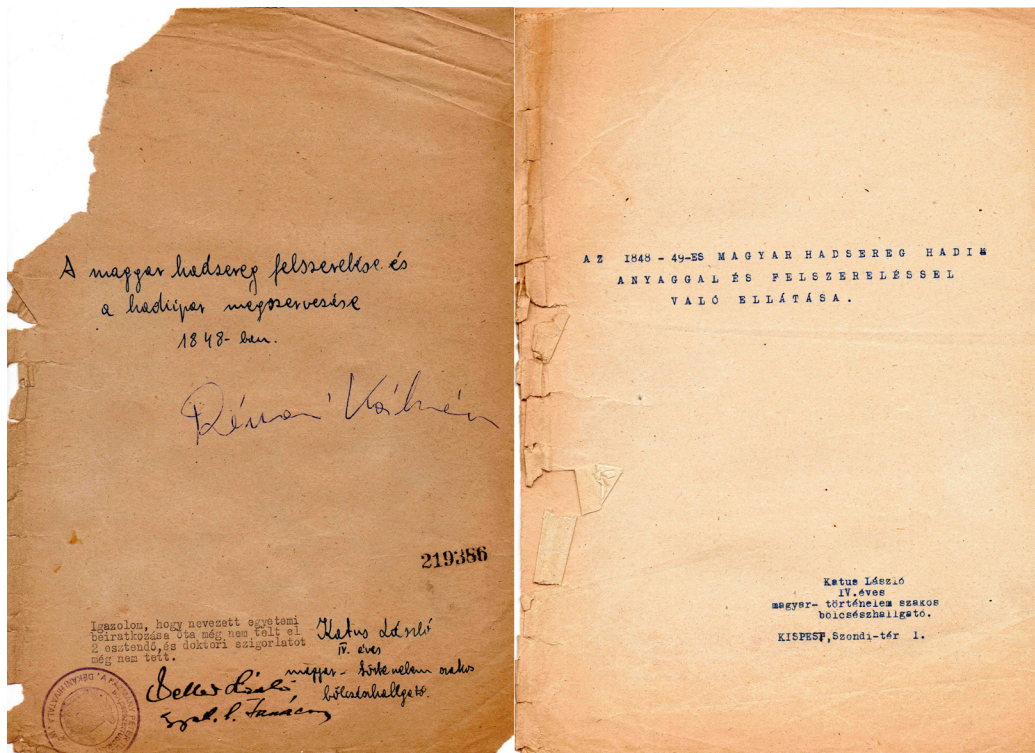 A magyar hadsereg felszerelése és
a hadiipar megszervezése
1848-ban.
Kálmán
219386
Igazolom, hogy nevezett egyetemi
beiratkozása óta még nem telt el
2 esztendő,és doktori szigorlatot
még nem tett.
Katus László
IV. éves
magyar - történelem szakos
bölcsészhallgató.
László
DÉKÁNI HIVATALA
AZ 1848 - 49-ES MAGYAR HADSEREG HADI
ANYAGGAL ÉS FELSZERELÉSSEL
VALÓ ELLÁTÁSA.
Katus László
IV.éves
magyar- történelem szakos
bölcsészhallgató.
KISPEST,Szondi-tér 1.